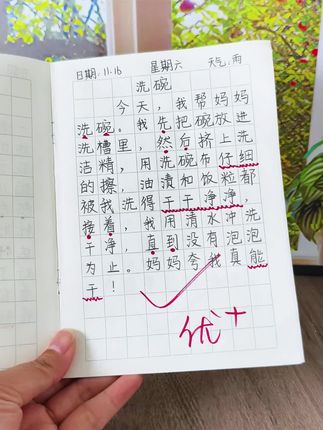 日期:11.16 星期六 天气:雨
洗碗
今天,我帮妈妈
洗碗。我先把碗放进
洗槽里,然后挤上洗
洁精,用洗碗布仔细
的擦,油渍和饭粒都
被我洗得干干净净,
接着,我用清水冲洗
干净,直到没有泡泡
为止。妈妈夸我真能
干!
优+